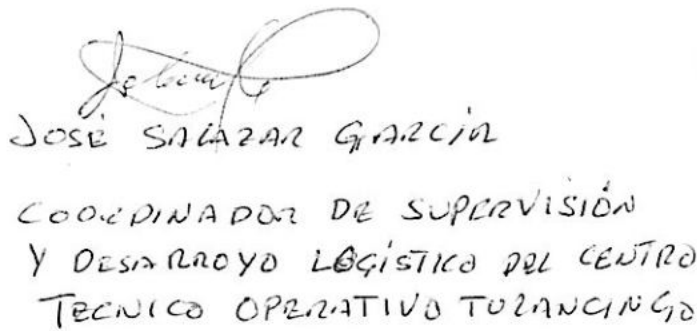 JOSÉ SALAZAR GARCÍA
COORDINADOR DE SUPERVISIÓN
Y DESARROYO LOGÍSTICO DEL CENTRO
TECNICO OPERATIVO TULANCINGO